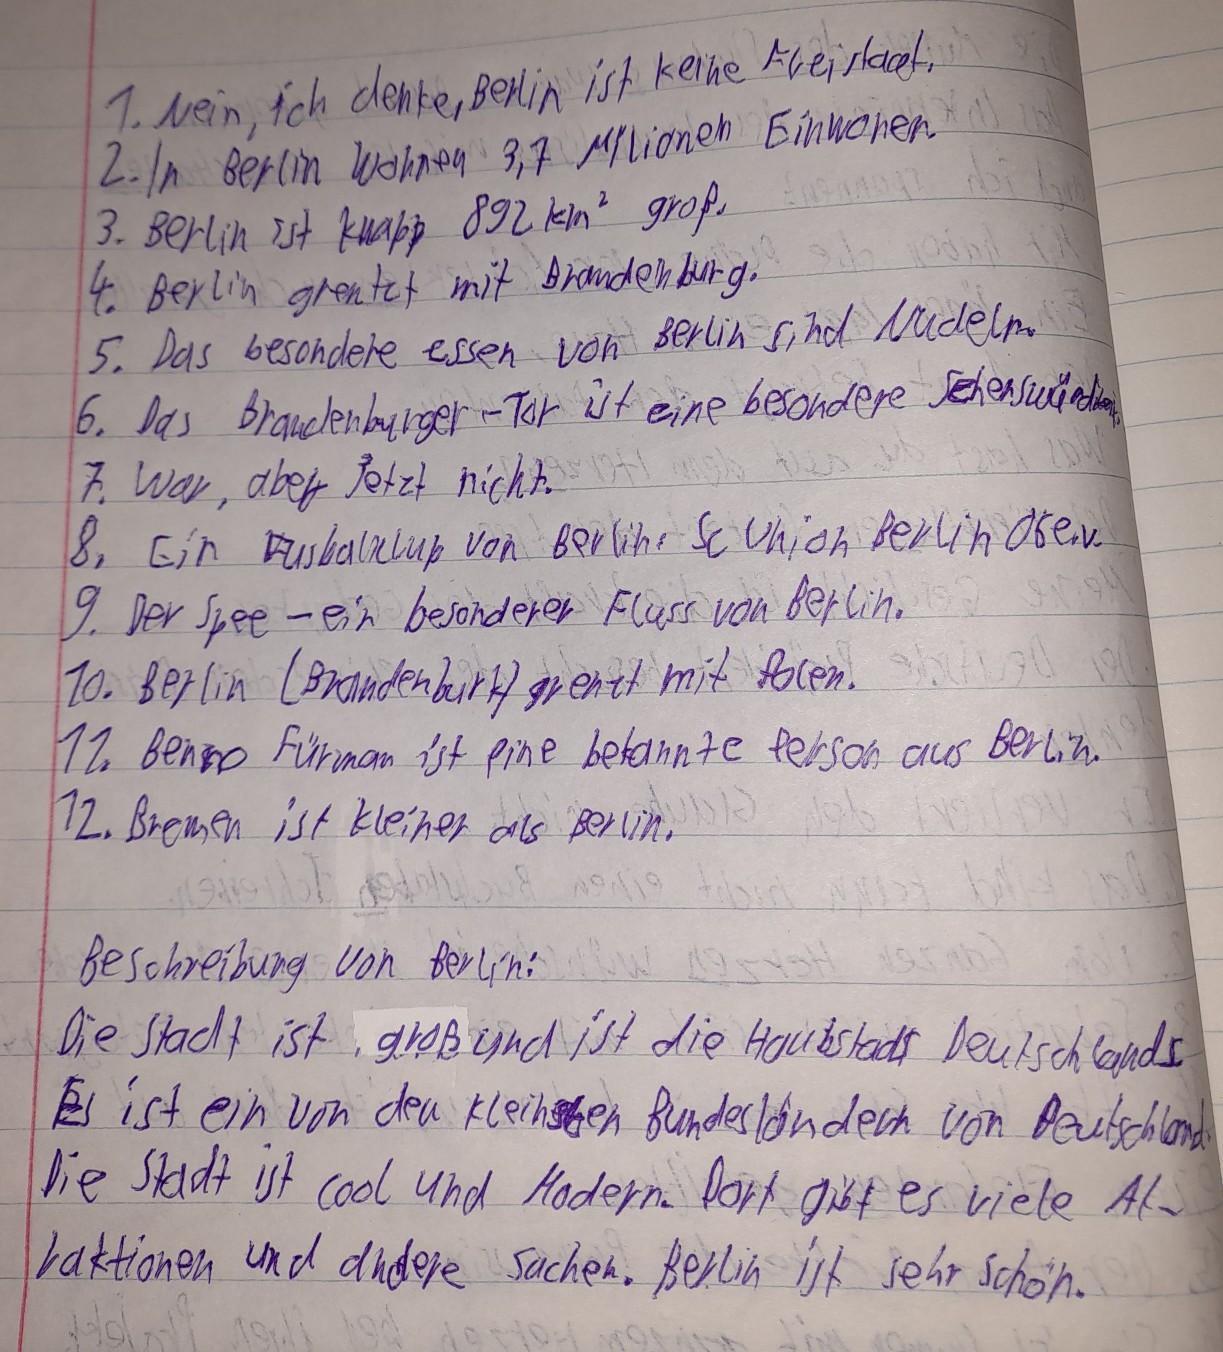 1. Nein, ich denke, Berlin ist keine Freistaat.
2. In Berlin Wohnen 3,7 Milionen Einwonen.
3. Berlin ist knapp 892 km² groß.
4. Berlin grentzt mit Brandenburg.
5. Das besondere essen von Berlin sind Nudeln.
6. Das Brandenburger-Tor ist eine besondere
7. War, aber Jetzt nicht.
8. Ein von Berlin: Sc Union Berlin e.v.
9. Der Spee – ein besonderer Fluss von Berlin.
10. Berlin (Brandenburk) grentzt mit Polen.
11. Benno Fürman ist eine bekannte Person aus Berlin.
12. Bremen ist kleiner als Berlin.
Beschreibung von Berlin:
Die Stadt ist groß und ist die Deutschlands
Es ist ein von den kleinsten Bundesländern von Deutschland.
Die Stadt ist cool und Modern. Dort gibt es viele At-
raktionen und andere Sachen. Berlin ist sehr schön.